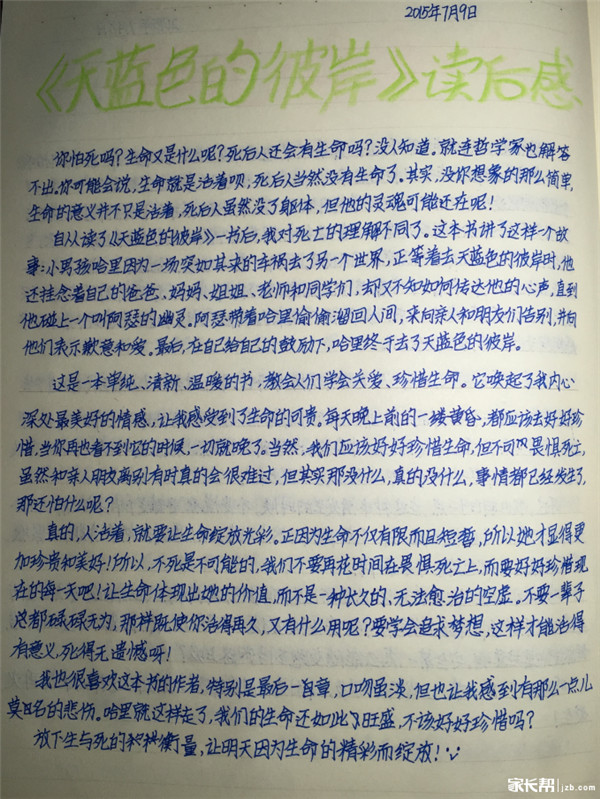 2015年7月9日
《天蓝色的彼岸》读后感
你怕死吗?生命又是什么呢?死后人还会有生命吗?没人知道。就连哲学家也解答
不出。你可能会说,生命就是活着呗,死后人当然没有生命了。其实,没你想象的那么简单,
生命的意义并不只是活着,死后人虽然没了躯体,但他的灵魂可能还在呢!
自从读了《天蓝色的彼岸》一书后,我对死亡的理解不同了。这本书讲了这样一个故
事:小男孩哈里因为一场突如其来的车祸去了另一个世界,正等着去天蓝色的彼岸时,他
还挂念着自己的爸爸、妈妈、姐姐、老师和同学们,却又不知如何传达他的心声,直到
他碰上一个叫阿瑟的幽灵。阿瑟带着哈里偷偷溜回人间,来向亲人和朋友们告别,并向
他们表示歉意和爱。最后,在自己给自己的鼓励下,哈里终于去了天蓝色的彼岸。
这是一本单纯、清新、温暖的书,教会人们学会关爱、珍惜生命。它唤起了我内心
深处最美好的情感,让我感受到了生命的可贵。每天晚上前的一缕黄昏,都应该去好好珍
惜,当你再也看不到它的时候,一切就晚了。当然,我们应该好好珍惜生命,但不可以畏惧死亡,
虽然和亲人朋友离别有时真的会很难过,但其实那没什么,真的没什么,事情都已经发生了,
那还怕什么呢?
真的,人活着,就要让生命绽放光彩。正因为生命不仅有限而且短暂,所以她才显得更
加珍贵和美好!所以,不死是不可能的,我们不要再花时间在畏惧死亡上,而要好好珍惜现
在的每一天吧!让生命体现出她的价值,而不是一种长久的、无法愈治的空虚。不要一辈子
这都碌碌无为,那样既使你活得再久,又有什么用呢?要学会追求梦想,这样才能活得
有意义,死得无遗憾呀!
我也很喜欢这本书的作者,特别是最后一自章,口吻虽淡,但也让我感到有那么一点儿
莫名的悲伤。哈里就这样走了,我们的生命还如此旺盛,不该好好珍惜吗?
放下生与死的衡量,让明天因为生命的精彩而绽放!
家长帮 jzb.com